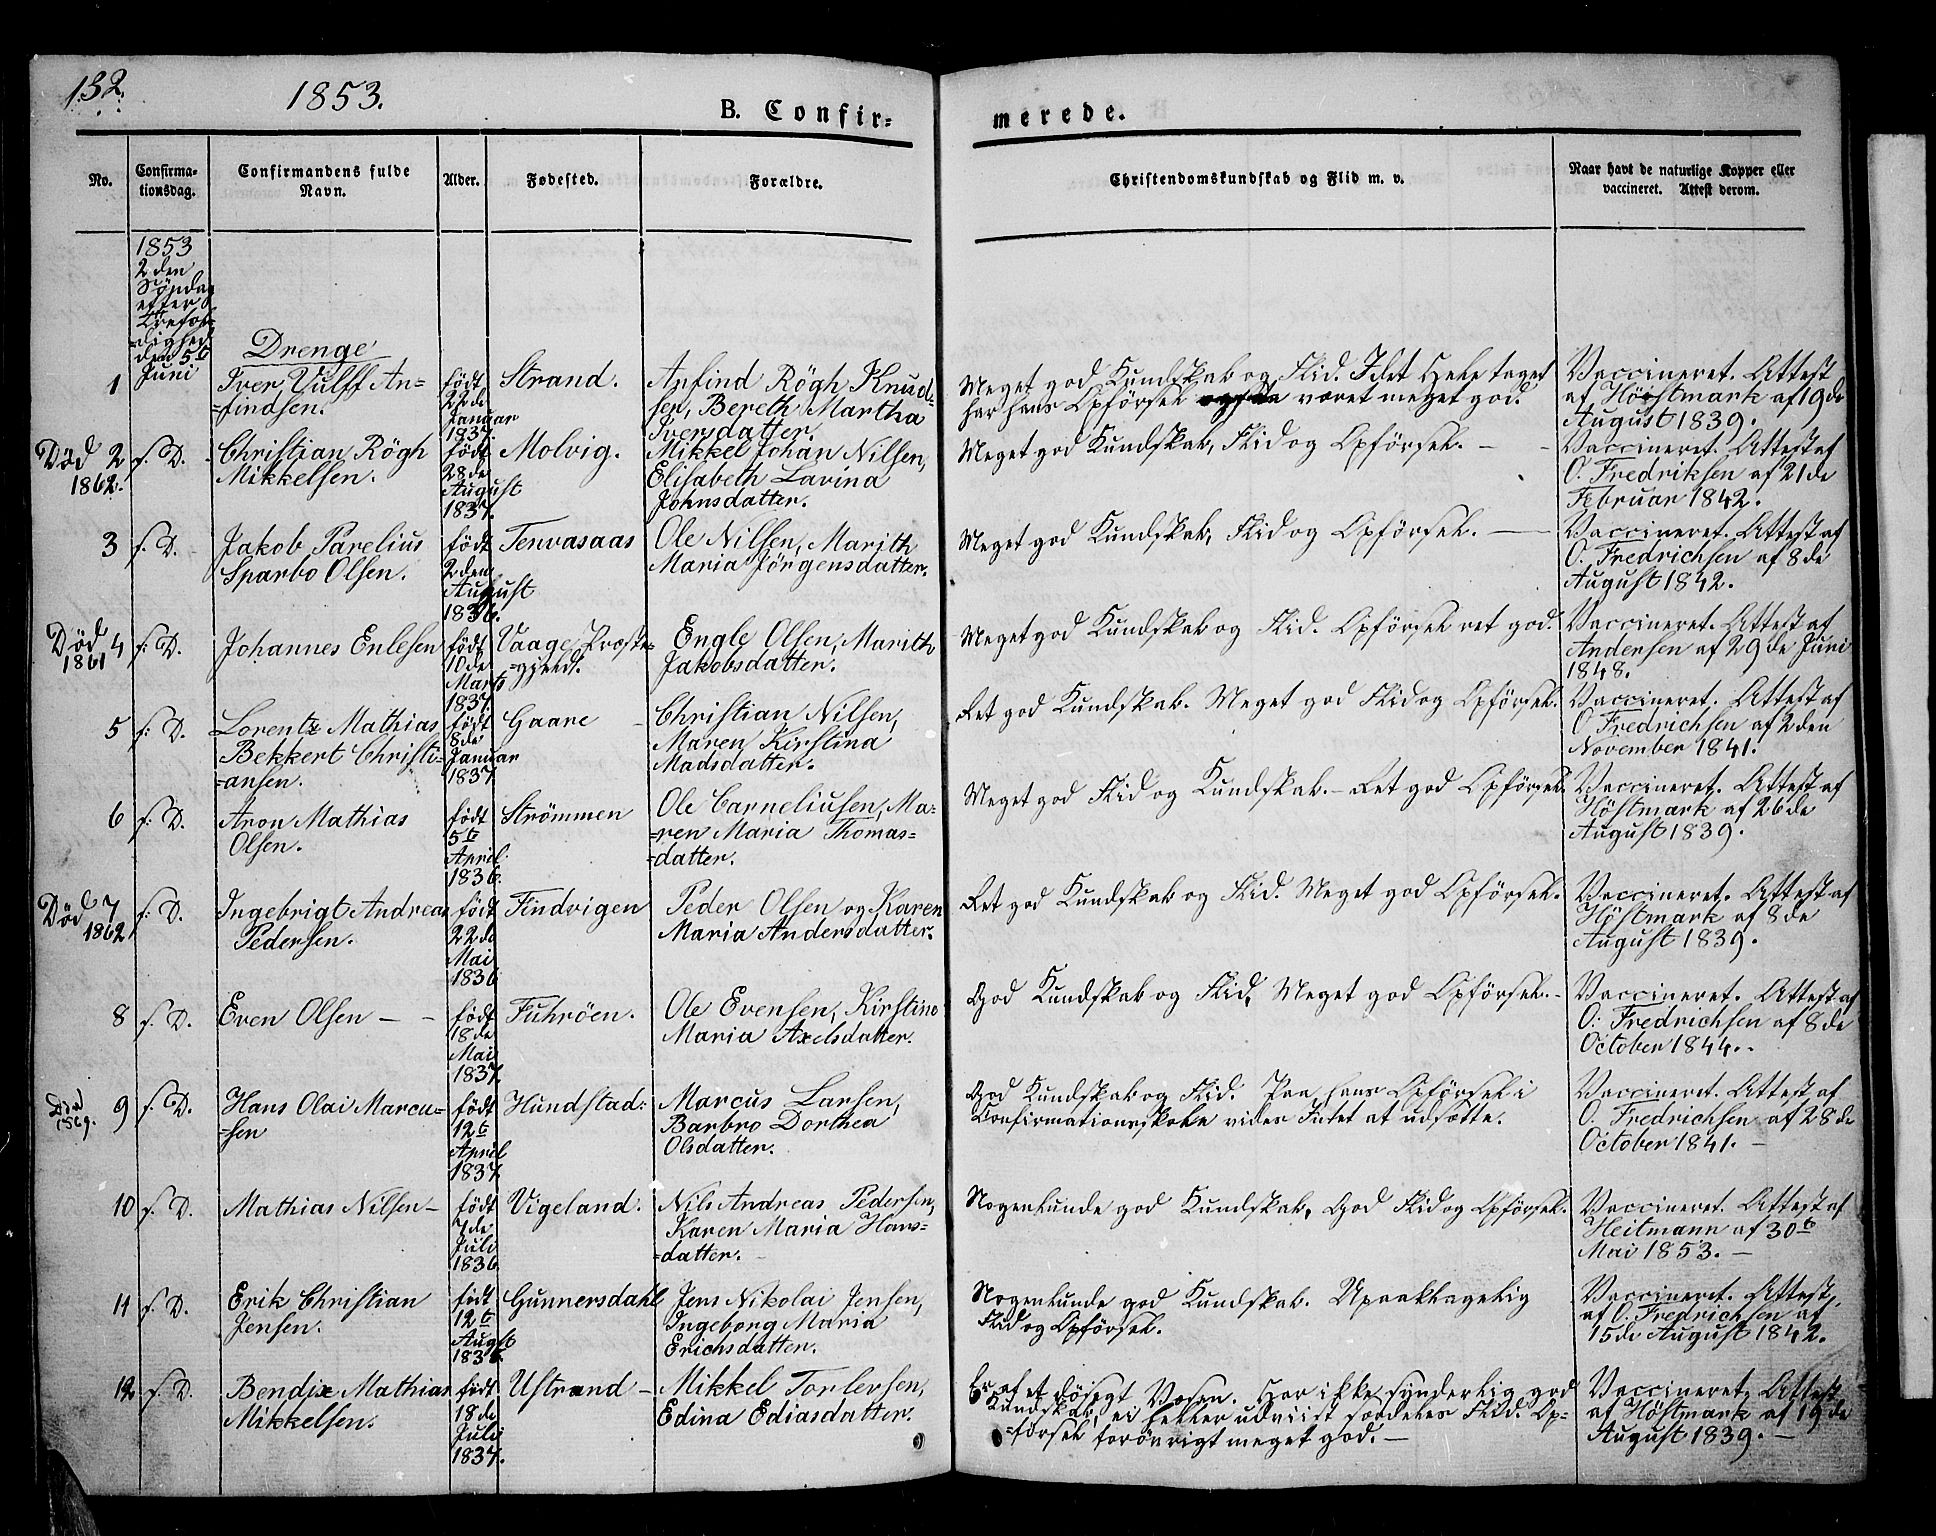 132.
1853.
B. Confir=
merede.
No.
Confirma-
tionsdag.
Confirmandens fulde
Navn.
Alder.
Fødested.
Forældre.
Christendomskundskab og Flid m. v.
Naar havt de naturlige Kopper eller
vaccineret. Attest derom.
1853
2den
Söndag
efter
Trefol=
=dighed
den 5te
Juni
Drenge
1
Iver Vulff An=
=findsen.
födt
22de
Januar
1837.
Strand.
Anfind Rögh Knud=
sen, Bereth Martha
Iversdatter.
Meget god Kundskab og Flid. I det Hele taget
har hans Opförsel været meget god.
Vaccineret. Attest
af Höstmark af 19de
August 1839.
Död 2
1862.
s. D.
Christian Rögh
Mikkelsen.
födt
28de
August
1837.
Molvig.
Mikkel Johan Nilsen,
Elisabeth Lavina
Johnsdatter.
Meget god Kundskab, Flid og Opförsel. —
Vaccineret. Attest af
O. Fredriksen af 21de
Februar 1842.
3
s. D.
Jakob Parelius
Sparbo Olsen.
födt
2den
August
1836.
Tenvasaas
Ole Nilsen, Marith
Maria Jörgensdatter.
Meget god Kundskab, Flid og Opförsel. —
Vaccineret. Attest af
O. Fredrichsen af 8de
August 1842.
Död 4
1861
s. D.
Johannes Enlesen
födt
10de
Marts
1837.
Vaage Præste=
=gjeld.
Engle Olsen, Marith
Jakobsdatter.
Meget god Kundskab og Flid. Opförsel ret god.
Vaccineret. Attest af
Andersen af 29de Juni
1848.
5
s. D.
Lorentz Mathias
Bekkert Christi=
=ansen.
födt
8de
Januar
1837
Gaare
Christian Nilsen,
Maren Kirstina
Madsdatter.
Ret god Kundskab. Meget god Flid og Opförsel.
Vaccineret. Attest af
O. Fredrichsen af 2den
November 1841.
6
s. D.
Aron Mathias
Olsen.
födt
5te
April
1836.
Strömmen
Ole Corneliusen, Ma=
=ren Maria Thomas=
=datter.
Meget god Flid og Kundskab. – Ret god Opförsel.
Vaccineret. Attest af
Höstmark af 26de
August 1839.
Död 7
1862
s. D.
Ingebrigt Andreas
Pedersen.
födt
22de
Mai
1836
Findvigen
Peder Olsen og Karen
Maria Andersdatter.
Ret god Kundskab og Flid. Meget god Opförsel.
Vaccineret. Attest af
Höstmark af 8de
August 1839.
8
s. D.
Even Olsen – –
födt
18de
Mai
1837.
Fuhröen.
Ole Evensen, Kirstine
Maria Axelsdatter.
God Kundskab og Flid. Meget god Opförsel. –
Vaccineret. Attest af
O: Fredrichsen af 8de
October 1844.
9
s. D.
Hans Olai Marcu=
=sen
födt
12te
April
1837
Hundstad:
Marcus Larsen,
Barbro Dorthea
Olsdatter.
God Kundskab og Flid. Paa hans Opförsel i
Confirmationsskole vides Intet at udsætte.
Vaccineret. Attest af
O. Fredrichsen af 28de
October 1841. –
10
s. D.
Mathias Nilsen –
födt
7de
Juli
1836
Vigeland.
Nils Andreas Pedersen,
Karen Maria Hans=
=datter.
Nogenlunde god Kundskab, God Flid og Opförsel.
Vaccineret. Attest af
Heitmann af 30te
Mai 1853. –
11
s. D.
Erik Christian
Jensen.
födt
12te
Augst
1836.
Gunnersdahl
Jens Nikolai Jensen,
Ingeborg Maria
Erichsdatter.
Nogenlunde god Kundskab. Upaaklagelig
Flid og Opförsel.
Vaccineret. Attest
af O. Fredrichsen af
15de August 1842.
12
s. D.
Bendix Mathias
Mikkelsen.
födt
18de
Juli
1837.
Ustrand –
Mikkel Torlevsen,
Edina Ediasdatter.
Er af et dösigt Væsen. Har ikke synderlig god
Kundskab, ei heller udviist særdeles Flid. Op=
=försel forövrigt meget god. –
Vaccineret. Attest
af Höstmark af 19de
August 1839. –